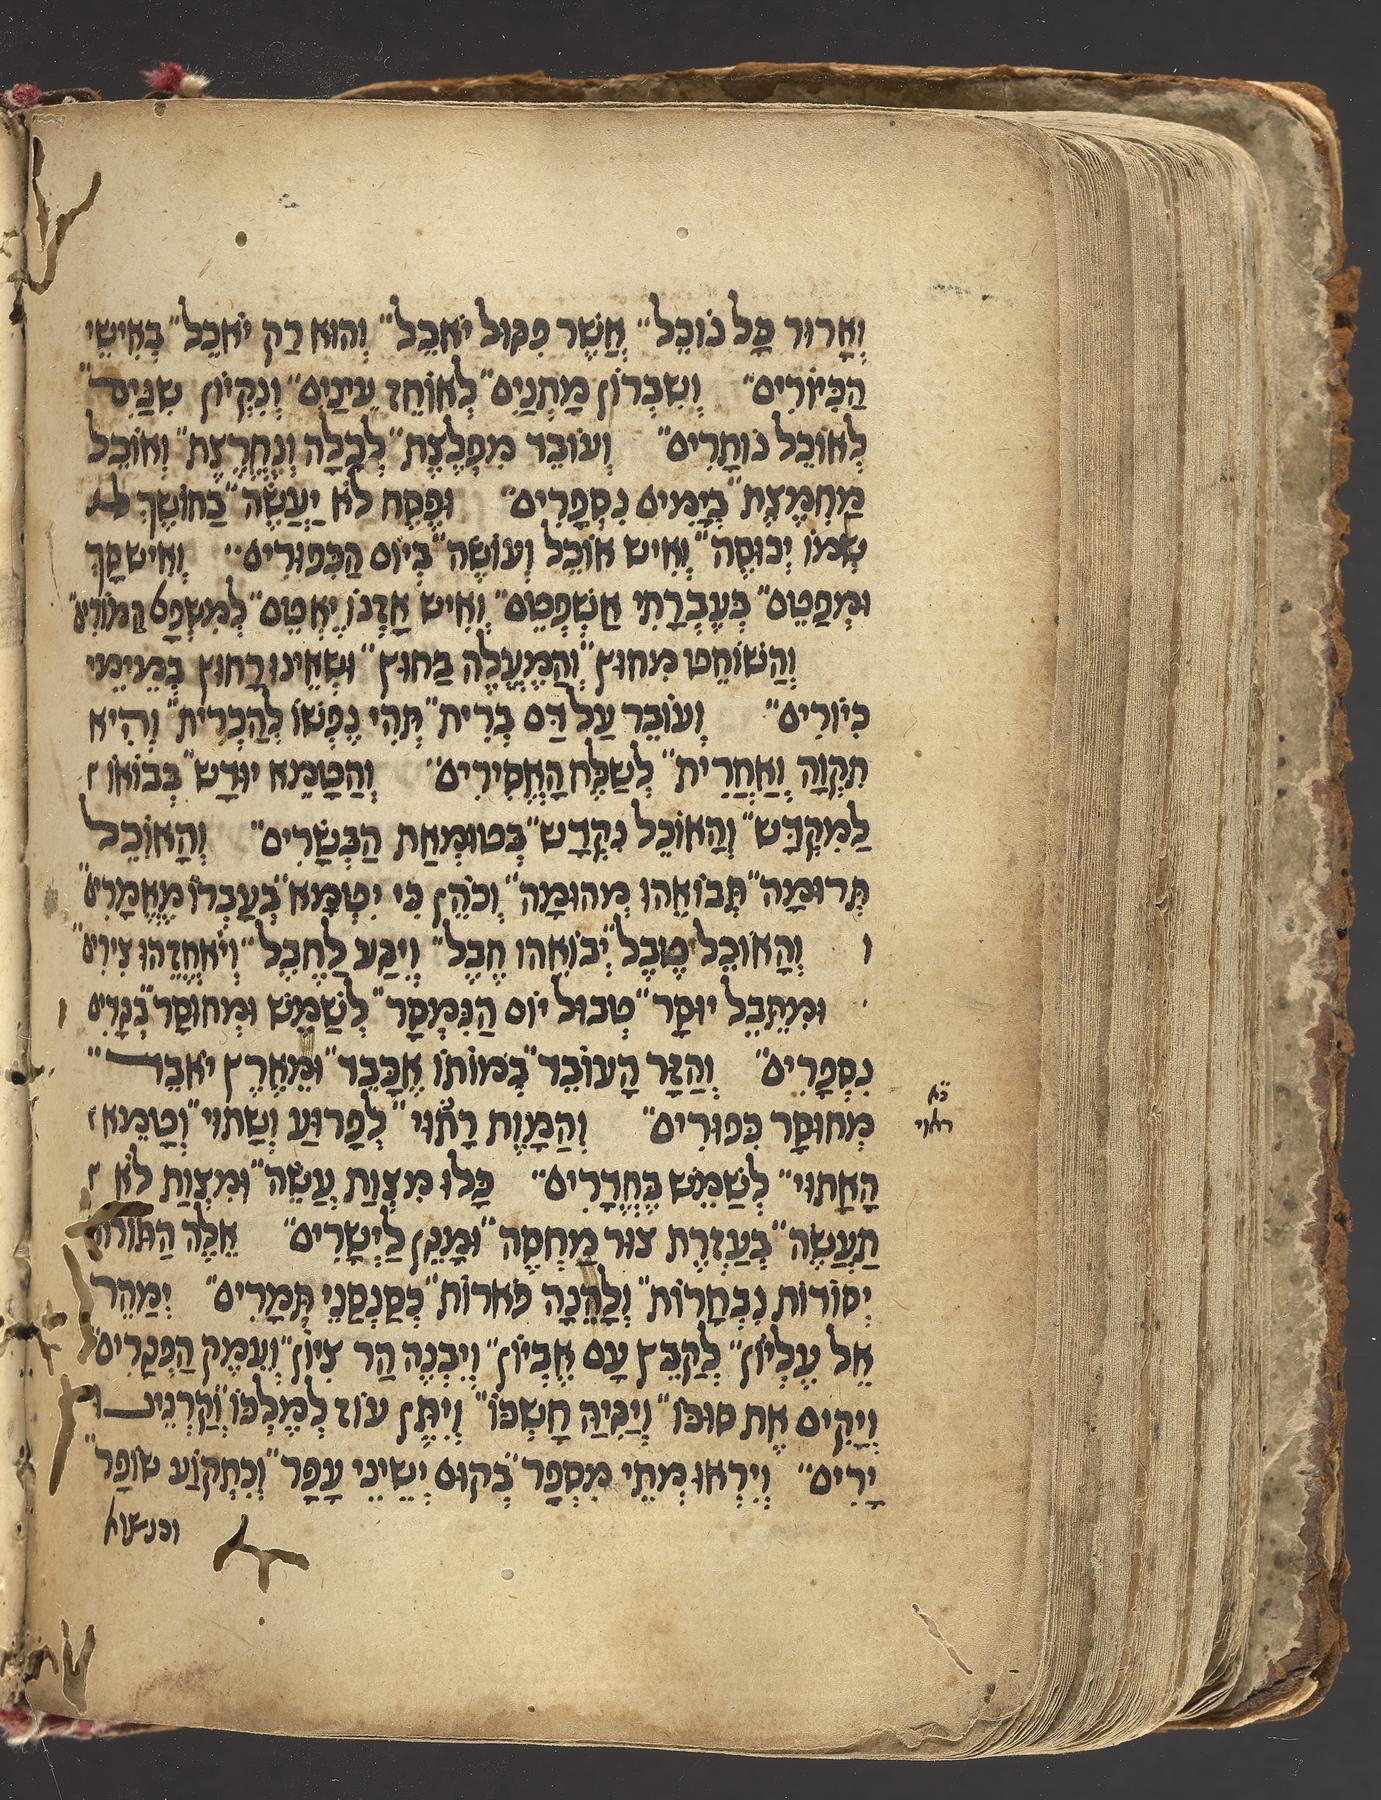 וְאָרוּר כָּל נוֹכֵל״ אֲשֶׁר פִּגּוּל יֹאכֵל״ וְהוּא רַק יֹאכֵל״ בְּאִישֵׁי
הַכִּיּוֹרִים״ וְשִׁבְרוֹן מָתְנַיִם״ לְאוֹחֵז עֵינַיִם״ וְנִקְיוֹן שִׁנַּיִם״
לְאוֹכֵל נוֹתָרִים״ וְעוֹבֵד מִפְלֶצֶת״ לְכָלָה וְנֶחֱרֶצֶת״ וְאוֹכֵל
מַחְמֶצֶת״ בְּיָמִים נִסְפָּרִים״ וּפֶסַח לֹא יֵעָשֶׂה״ בַּחוֹשֶׁךְ
שְׁמוֹ יְכוּסֶּה״ וְאִישׁ אוֹכֵל וְעוֹשֶׂה״ בְּיוֹם הַכִּפּוּרִים״ וְאִישׁ סָךְ
וּמְפַטֵּם״ בְּעֶבְרָתִי אֲשַׁפְּטֵם״ וְאִישׁ אָזְנוֹ יֶאְטֵם״ לְמִשְׁפַּט הַמּוֹרִים״
וְהַשּׁוֹחֵט מִחוּץ״ וְהַמַּעֲלֶה בַּחוּץ״ וּשְׁאֵינוּ רָחוּץ בְּמֵימֵי
כִיּוֹרִים״ וְעוֹבֵר עַל דַּם בְּרִית״ תְּהִי נֶפֶשׁוֹ לְהַכְרִית״ וְהִיא
תִקְוָה וְאַחֲרִית״ לְשַׁלֵּחַ הָאֲסִירִים״ וְהַטָּמֵא יוּרָשׁ״ בְּבוֹאוֹ
לַמִּקְדָּשׁ״ וְהָאוֹכֵל נִקְדָשׁ״ בְּטוּמְאַת הַבְּשָׂרִים״ וְהָאוֹכֵל
תְּרוּמָה״ תְּבוֹאֵהוּ מְהוּמָה״ וְכֹהֵן כִּי יִטְמָא״ בְּעָבְרוֹ מַאֲמָרִים״
וְהָאוֹכֵל טֶבֶל״ יְבוֹאֵהוּ חֶבֶל״ וְיִבַּע לַחֶבֶל״ וְיֹאחֲזֵהוּ צִירִים״
וּמִתֵּבֵל יוּסָר״ טְבוּל יוֹם הַנִּמְסָר״ לְשַׁמֵּשׁ וּמְחוּסַר״ בְּגָדִים
נִסְפָּרִים״ וְהַזָּר הָעוֹבֵד״ בְּמוֹתוֹ אֲכַבֵּד״ וּמֵאֶרֶץ יֹאבֵד״
מְחוּסָר כִּפּוּרִים״ וְהַמָּוֶת רָאוּי״ לְפָרוּעַ וְשָׁתוּי״ וְטָמֵא
הָאָתוּי״ לְשַׁמֵּשׁ בַּחֲדָרִים״ כָּלוּ מִצְוַת עֲשֵׂה״ וּמִצְוַת לֹא
תַעֲשֶׂה״ בְּעֶזְרַת צוּר מַחְסֶה״ וּמָגֵן לַיְשָׁרִים״ אֵלֶּה הַתּוֹרוֹת
יְסוֹדוֹת נִבְחָרוֹת״ וְלָהֵנָּה פֹארוֹת״ כְּסַנְסַנֵּי תְּמָרִים״ יְמַהֵר
אֵל עֶלְיוֹן״ לְקַבֵּץ עַם אֶבְיוֹן״ וְיִבְנֶה הַר צִיּוֹן״ וְעֵמֶק הַפְּגָרִים
וְיָקִים אֶת סוּכּוֹ״ וְיַגִּיהַּ חָשְׁכּוֹ״ וְיִתֵּן עוֹז לְמַלְכּוֹ״ וְקַרְנֵינוּ
יָרִים״ וְיִרְאוּ מְתֵי מִסְפָּר״ בְּקוּם יְשֵׁינֵי עָפָר״ וְכִתְקוֹעַ שׁוֹפָר״
נ״א
ראוי